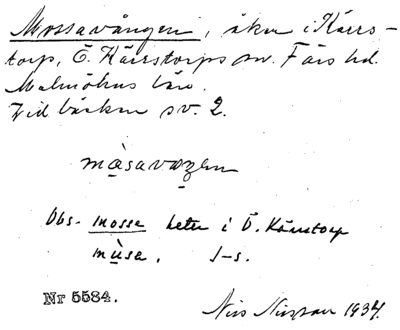 Mossavången, åker i Kärrs-
torp, Ö. Kärrstorps sn. Färs hd.
Malmöhus län.
Vid bäcken sv. 2.
màsavaŋen
Obs. mosse heter i Ö. Kärrstorp
mùsa. J-s.
Nr 5584.
Nils 1934.